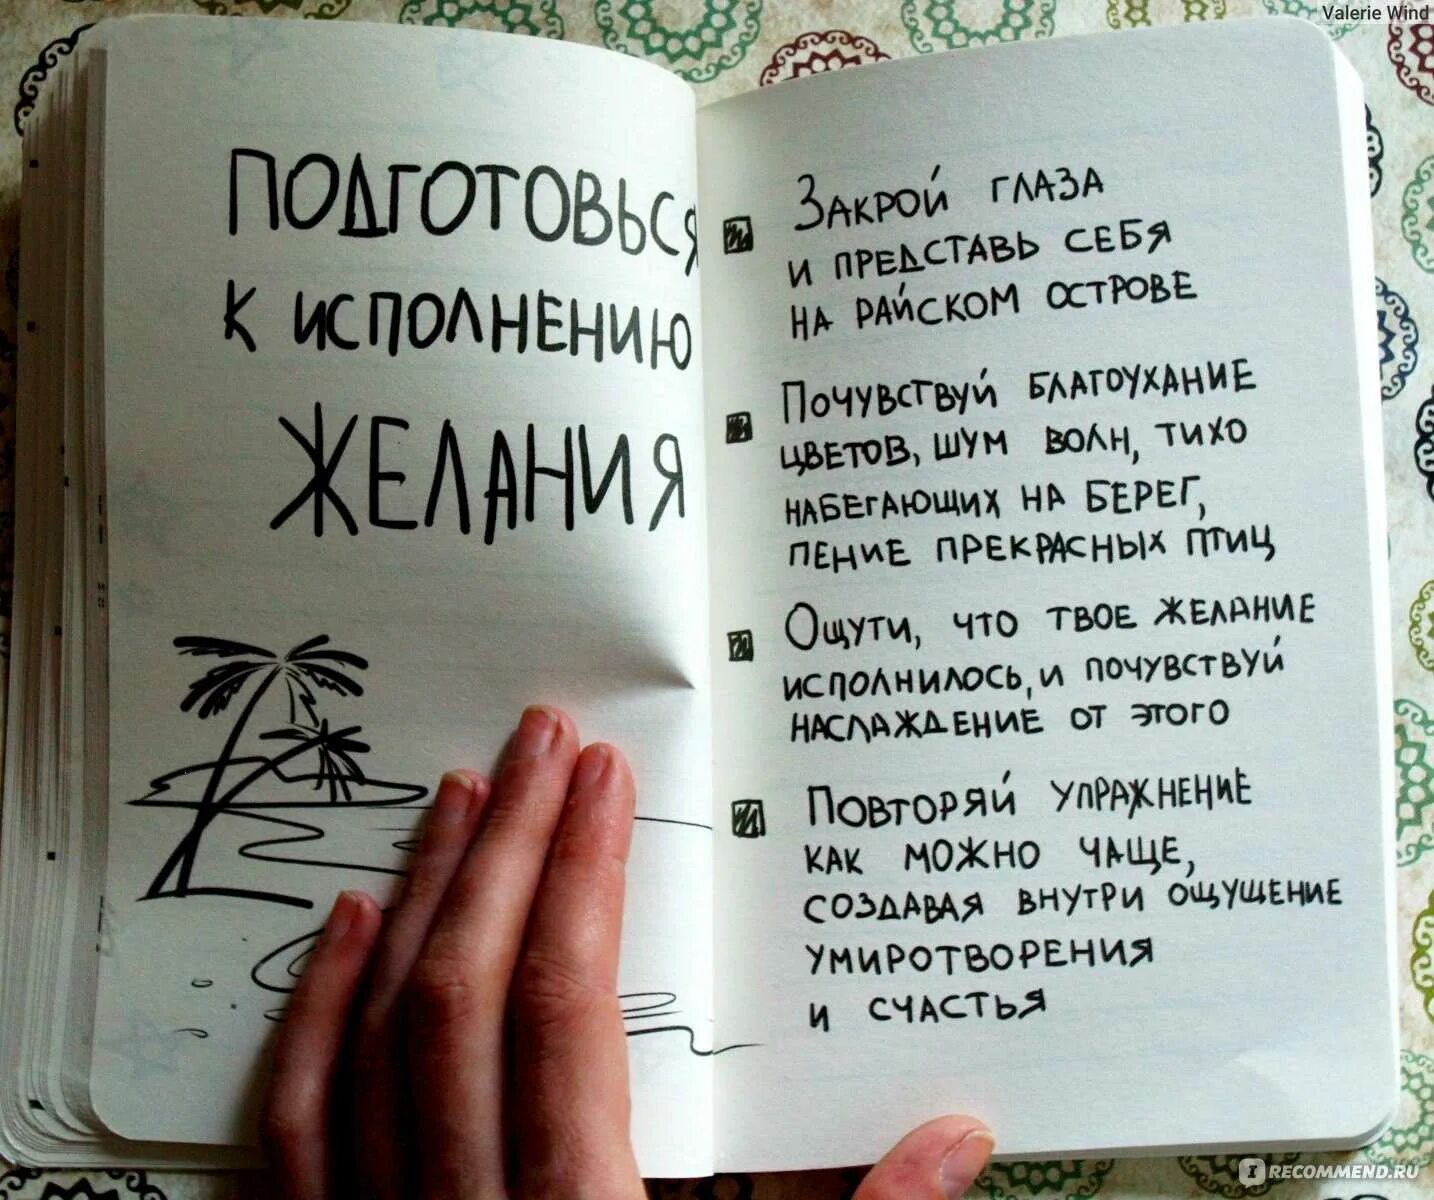 Valerie Wind
ПОДГОТОВЬСЯ
К ИСПОЛНЕНИЮ
ЖЕЛАНИЯ
ЗАКРОЙ ГЛАЗА
И ПРЕДСТАВЬ СЕБЯ
НА РАЙСКОМ ОСТРОВЕ
ПОЧУВСТВУЙ БЛАГОУХАНИЕ
ЦВЕТОВ, ШУМ ВОЛН, ТИХО
НАБЕГАЮЩИХ НА БЕРЕГ,
ПЕНИЕ ПРЕКРАСНЫХ ПТИЦ
ОЩУТИ, ЧТО ТВОЕ ЖЕЛАНИЕ
ИСПОЛНИЛОСЬ, И ПОЧУВСТВУЙ
НАСЛАЖДЕНИЕ ОТ ЭТОГО
ПОВТОРЯЙ УПРАЖНЕНИЕ
КАК МОЖНО ЧАЩЕ,
СОЗДАВАЯ ВНУТРИ ОЩУЩЕНИЕ
УМИРОТВОРЕНИЯ
И СЧАСТЬЯ
IRECOMMEND.RU